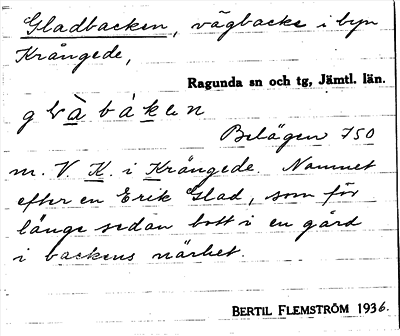 Gladbacken, vägbacke i byn
Krångede,
Ragunda sn och tg, Jämtl. län.
Belägen 750
m. V K. i Krångede. Namnet
efter en Erik Glad, som för
länge sedan bott i en gård
i backens närhet.
BERTIL FLEMSTRÖM 1936.